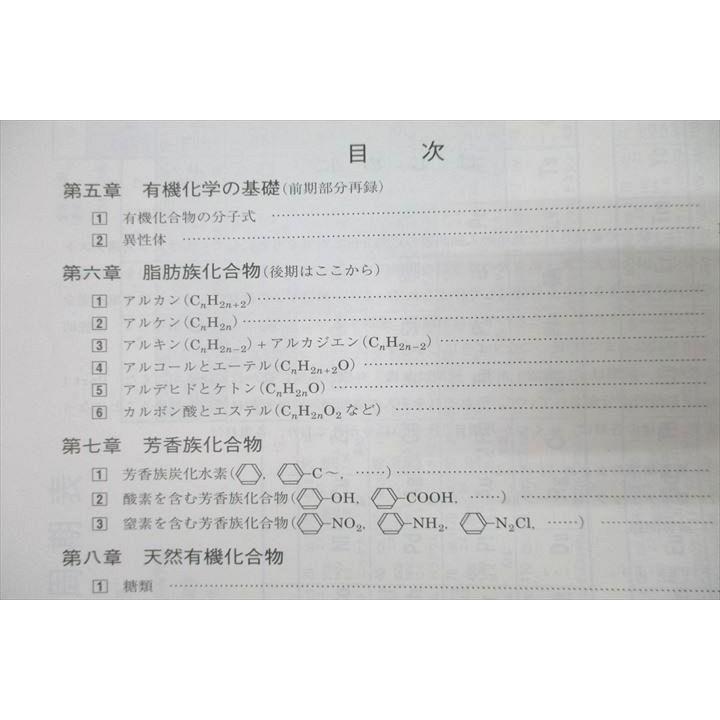 目次
第五章 有機化学の基礎(前期部分再録)
1 有機化合物の分子式 ……………………
2 異性体 ……………………
第六章 脂肪族化合物(後期はここから)
1 アルカン(CnH2n+2)……………………
2 アルケン(CnH2n)……………………
3 アルキン(CnH2n−2)+アルカジエン(CnH2n−2)……………………
4 アルコールとエーテル(CnH2n+2O)……………………
5 アルデヒドとケトン(CnH2nO)……………………
6 カルボン酸とエステル(CnH2nO2など)……………………
第七章 芳香族化合物
1 芳香族炭化水素(⌬, ⌬−C〜, ……)……………………
2 酸素を含む芳香族化合物(⌬−OH, ⌬−COOH, ……)……………………
3 窒素を含む芳香族化合物(⌬−NO2, ⌬−NH2, ⌬−N2Cl, ……)……………………
第八章 天然有機化合物
1 糖類 ……………………